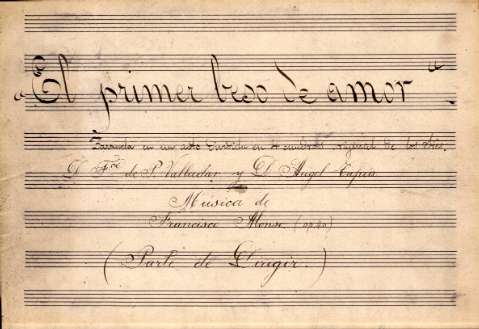 "El primer beso de amor".
Zarzuela en un acto dividida en 4 cuadros original de los Sres.
D. Fco de P. Valladar y D. Angel Tapia
Música de
Francisco Alonso. (op. 40)
(Parte de Dirigir.)